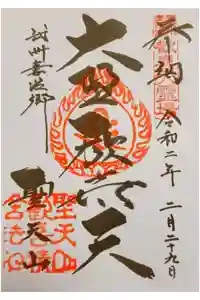 奉納
令和二年 二月二十九日
大聖歓喜天
武州妻沼郷
聖天山